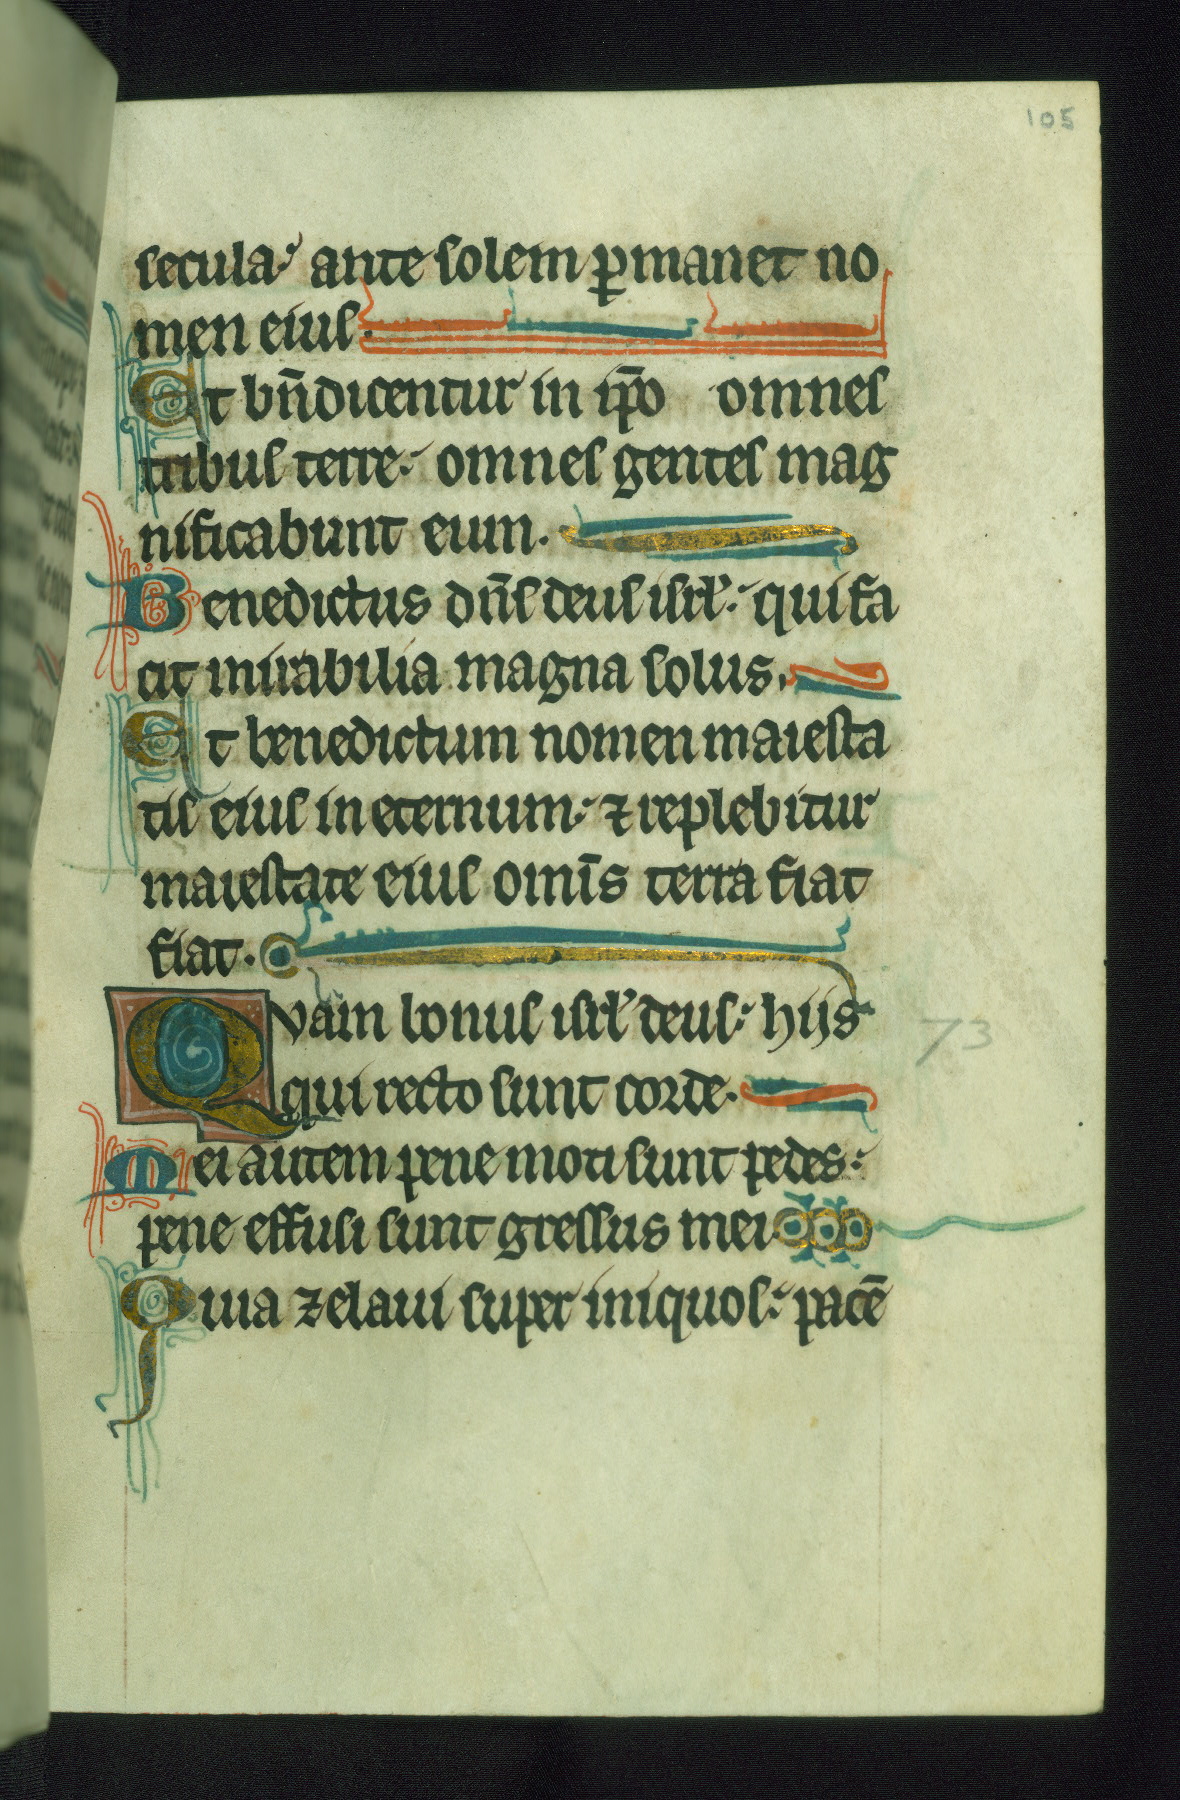 105
secula. ante solem p̲manet no
men eius.
Et bñdicentur in ip̄o omnes
tribus terre. omnes gentes mag
nificabunt eum.
Benedictus dñs deus isrl̕. qui fa
cit mirabilia magna solus.
Et benedictum nomen maiesta
tis eius in eternum. ⁊ replebitur
maiestate eius omīs terra fiat
fiat.
Quam bonus isrl̕ deus. hijs
73
qui recto sunt corde.
Mei autem pene moti sunt pedes.
pene effusi sunt gressus mei
Quia zelaui super iniquos. pacē